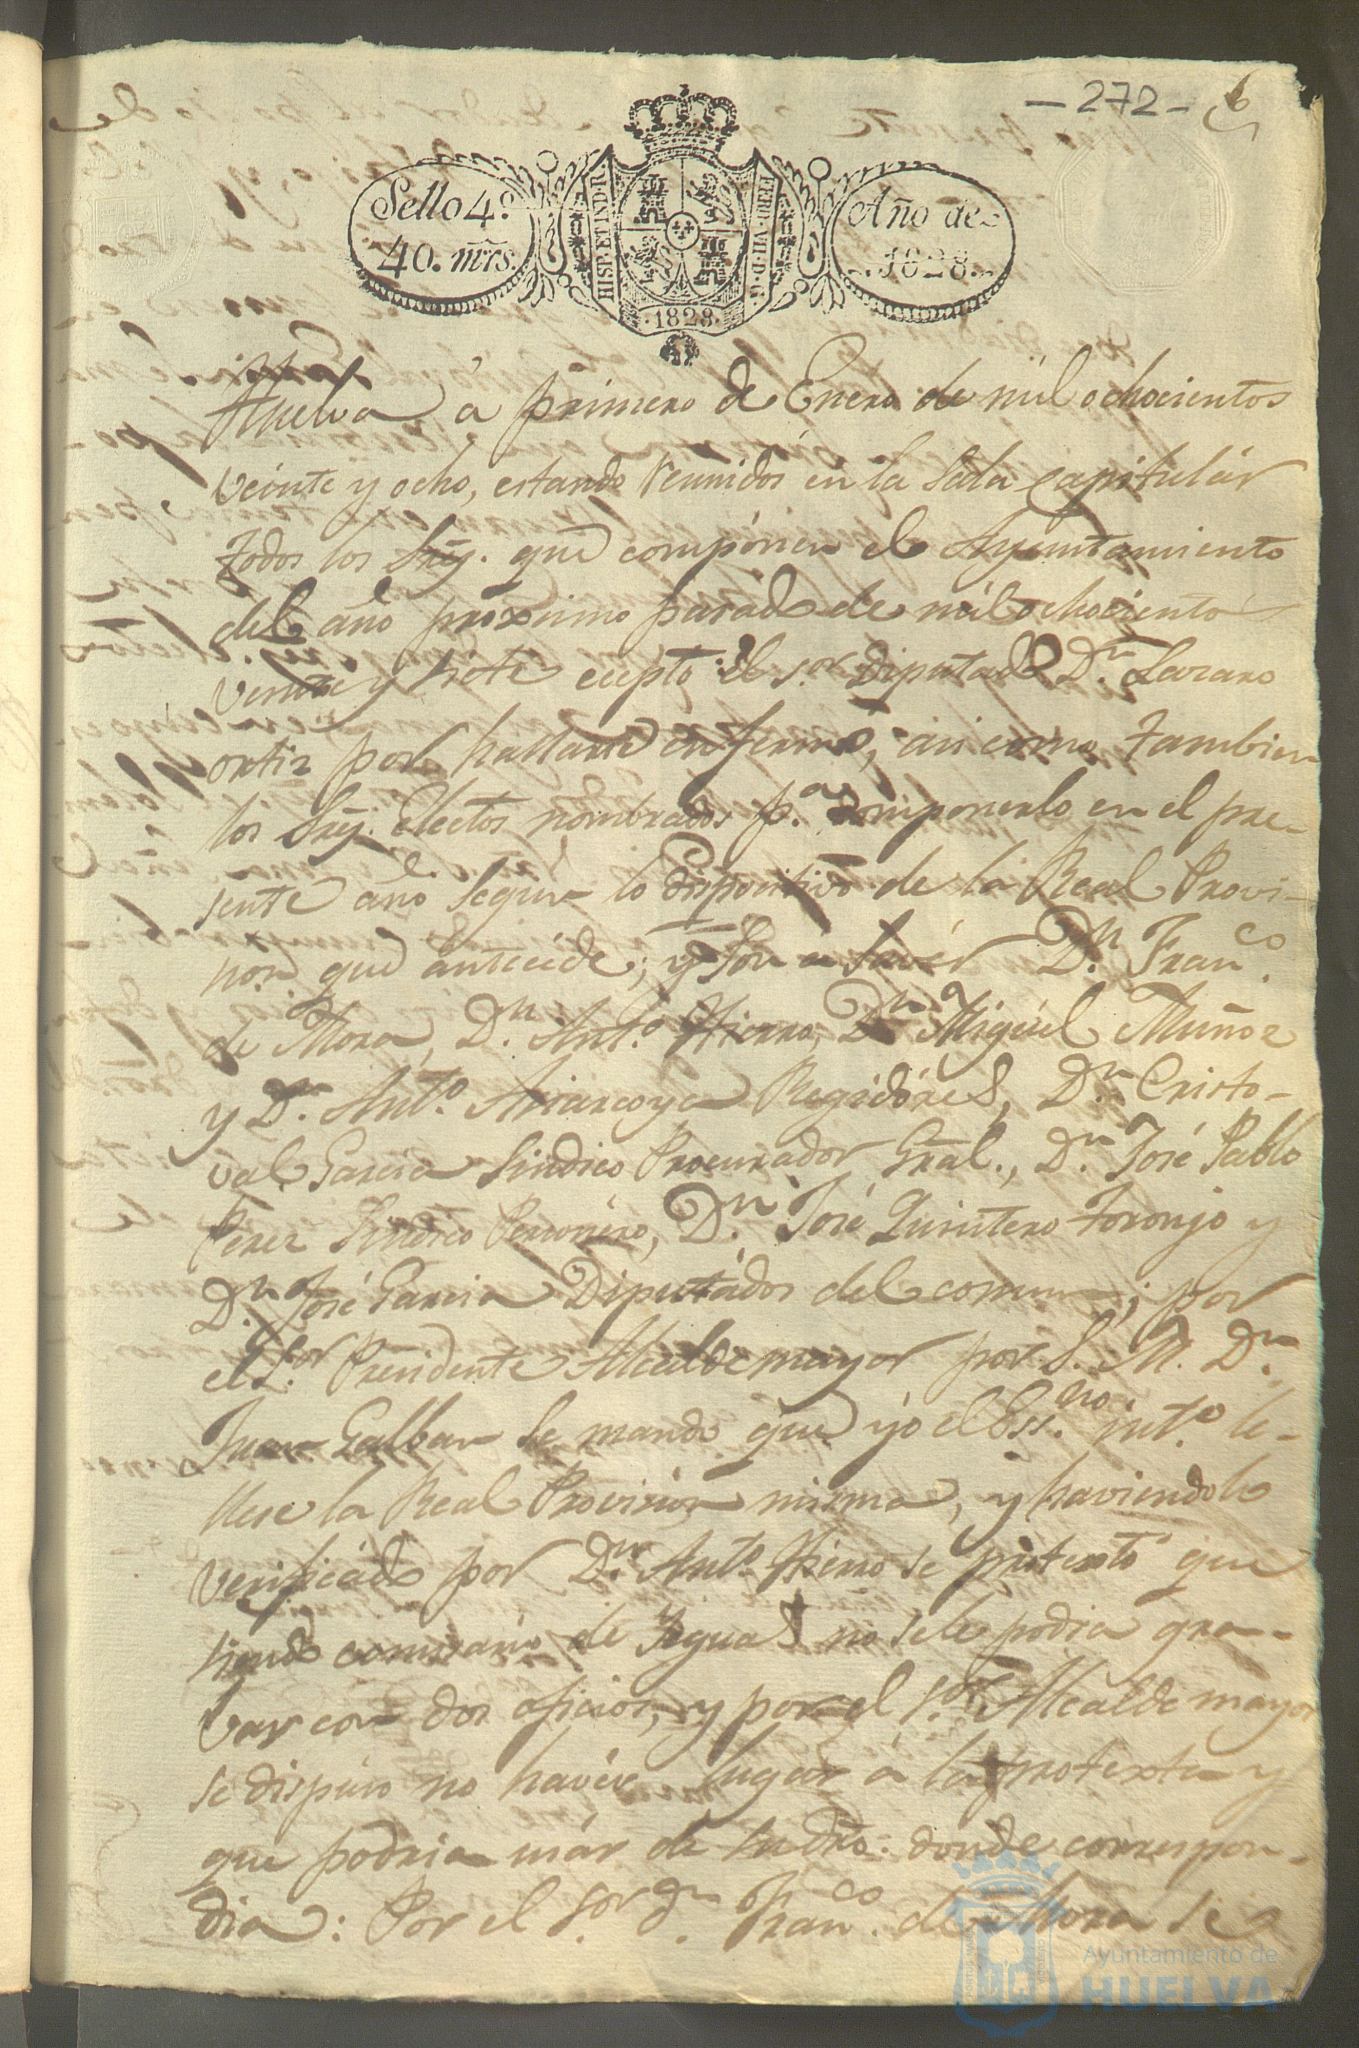 -272- 6
Sello 4.º
40. mrs.
HISP. ET IND. R.
FERD. VII. D. G.
1828.
Año de
1828.
Huelva á primero de Enero de mil ochocientos
veinte y ocho, estando reunidos en la Sala capitulár
todos los Sres. que compónen el Ayuntamiento
del año proximo pasado de mil ochociento
veinte y siete ecepto el Sor. Diputado Dn. Lazaro
ortiz por hallarse enfermo, asi como tambien
los Sres. electos nombrados pa. componerlo en el pre-
sente año segun lo dispocitivo de la Real Provi-
non que antecéde; y son a savér Dn. Franco.
de Mora, Dn. Anto. Hierro, Dn. Miguel Muñoz
y Dn. Anto. Regidóres, Dn. Cristo-
val Garcia Sindico Procurador Gral., Dn. José Pablo
Perez Sindico Personéro, Dn. José Quintero Toronjo y
Dn. José Garcia Diputádos del comun; por
el Sor. Presidente Alcalde mayor por S. M. Dn.
Juan Galban se mandó que yo el Essno. intº. le-
llese la Real Provision misma, y haviendolo
verificado por Dn. Anto. Hierro se protextó que
siendo comisario de no sele podia gra-
var con dos oficios, y por el Sor. Alcalde mayor
se dispuso no havér lugar á la protexta y
que podria usár de su dro. donde correspon-
dia: Por el Sor. Dn. Franco. de Mora se
Ayuntamiento de
HUELVA